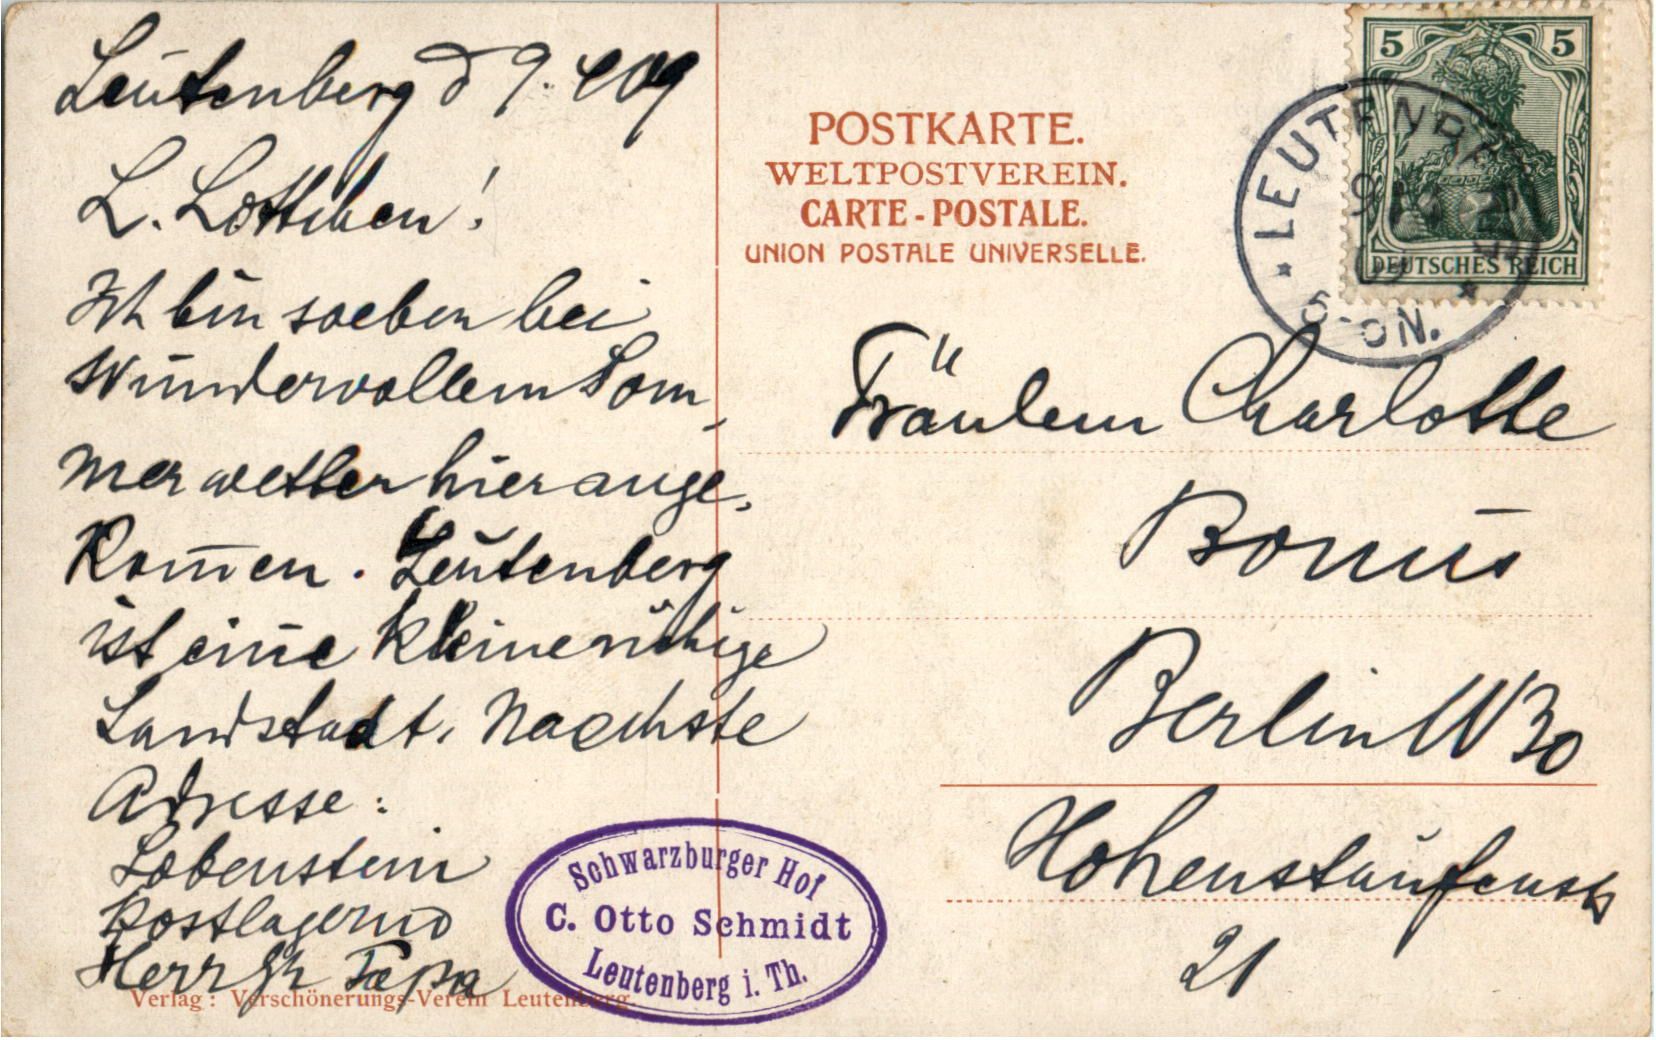 Leutenberg d 9. 4 09
L. Lottchen!
Ich bin soeben bei
wundervollem Som-
merwetter hier ange-
kom̄en. Leutenberg
ist eine kleine ruhige
Landstadt. Naechste
Adresse:
Lobenstein
Postlagernd
Herr
Papa
Verlag: Verschönerungs-Verein Leutenberg.
Schwarzburger Hof
C. Otto Schmidt
Leutenberg i. Th.
POSTKARTE.
WELTPOSTVEREIN.
CARTE-POSTALE.
UNION POSTALE UNIVERSELLE.
5 5
DEUTSCHES REICH
LEUTENBERG
5-6 N.
Fräulein Charlotte
Bonus
Berlin W 30
Hohenstaufenstr
21